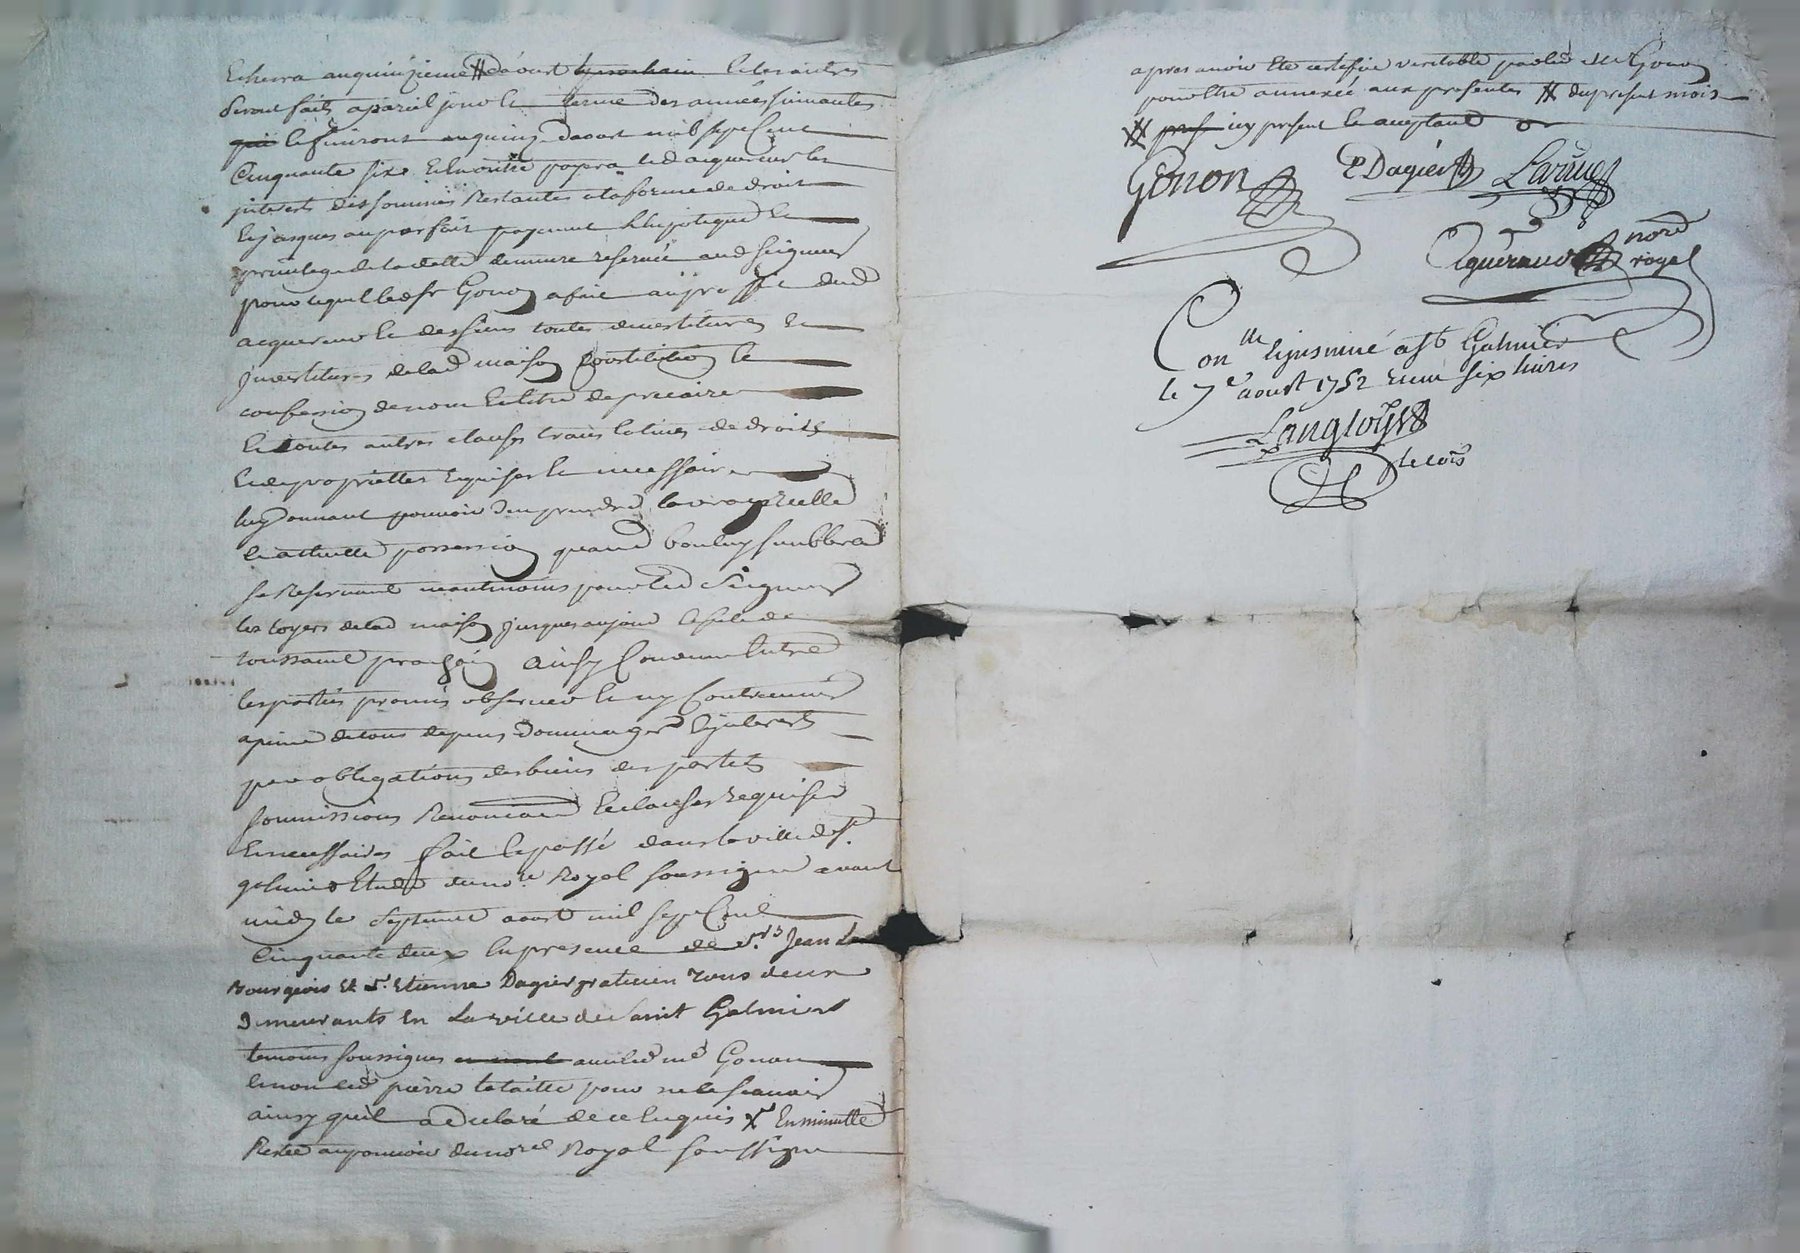 Echerra au quinzieme # daoust prochain Et les autres
seront faits a pareil jour et terme des années suivantes
qui finiront au quinze daoust mil sept Cent
Cinquante six Et en outre payera led acquereur les
interets des sommes Restantes a la forme de droit
et jusques au parfait payement l'hypoteque et
privilege de la dette demeure reservée aud seigneur
pour lequel led sr Gonon a fait au proffit dud
acquereur les toutes devestitures et
Investitures de lad maison Constitution et
confession de nom Et titre de precaire
Et toutes autres clauses translatives de droits
et de proprietter requises et necessaires
luy donnant pouvoir d'en prendre la vraye reelle
et actuelle possession quand bon luy semblera
se Reservant neantmoins pour led Seigneur
les loyers de lad maison jusques au jour et feste de
toussaint prochain ainsy Convenu Entre
les parties promis observer et ny Contrevenir
a peine de tous depens dommages Et interests
par obligations des biens des parties
soumissions Renonciations Et clauses requises
Et necessaires fait et passé dans la ville de St
galmier Etude du nore Royal soussigné avant
midy le septieme aoust mil sept Cent
Cinquante deux En presence de Srs Jean La
Bourgeois Et Sr Etienne Dagier praticien Tous deux
Demeurants En La ville de Saint Galmier
temoins soussignes avec led me Gonon
Et non led pierre lataille pour ne le scavoir
ainsy qu'il a declaré de ce Enquis X En minutte
Restée au pouvoir du nore Royal soussigné
apres avoir Ete certefié veritable par led Me Gonon
pour Etre annexée aux presentes # du present mois
# icy present et acceptant
Gonon P Dagier Larue
Agueraud nore
royal
Conlle Et insinué a St Galmier
le 7e aoust 1752 Receu six livres
Langlois